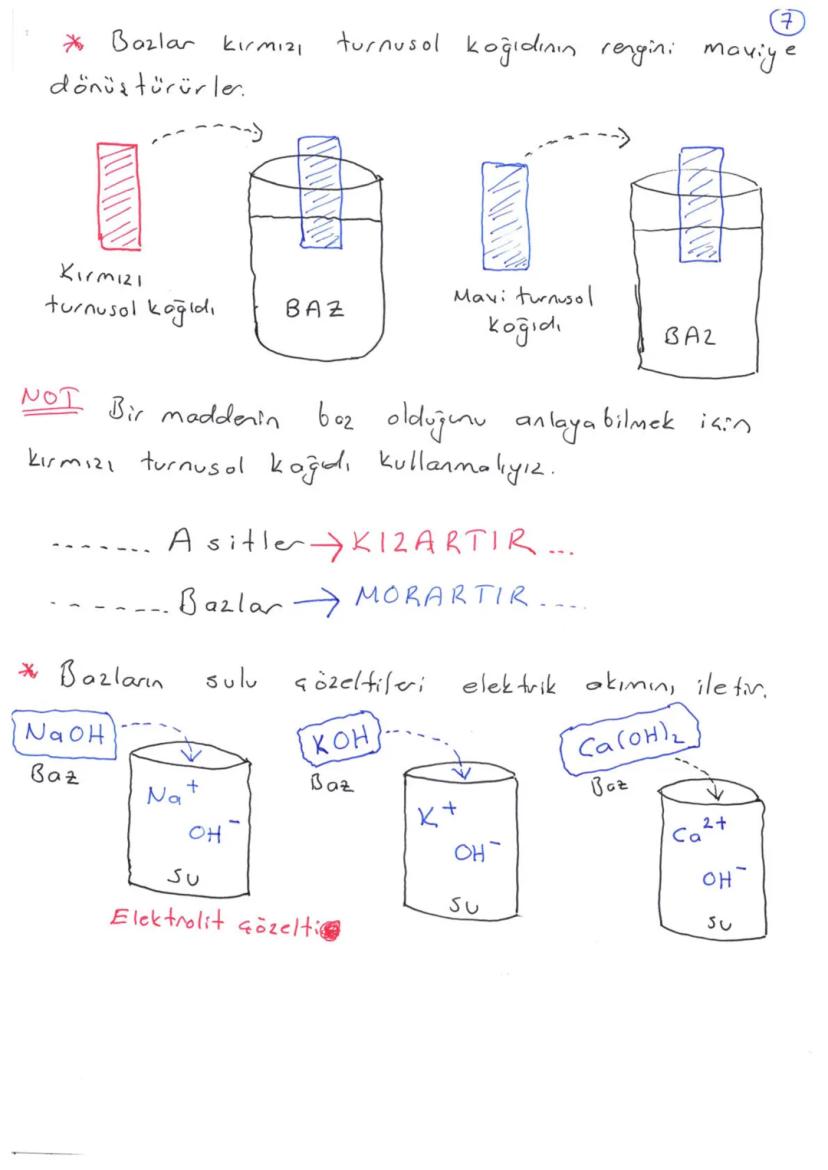 7
* Bazlar kırmızı turnusol kağıdının rengini maviye
dönüştürürler.
Kırmızı
turnusol kağıdı
BAZ
Mavi turnusol
kağıdı
BAZ
NOT Bir maddenin baz olduğunu anlayabilmek için
kırmızı turnusol kağıdı kullanmalıyız.
....... Asitler → KIZARTIR ...
....... Bazlar → MORARTIR ....
* Bazların sulu çözeltileri elektrik akımını iletir.
NaOH
Baz
Na⁺
OH⁻
SU
Elektrolit çözelti
KOH
Baz
K⁺
OH⁻
SU
Ca(OH)₂
Baz
Ca²⁺
OH⁻
SU